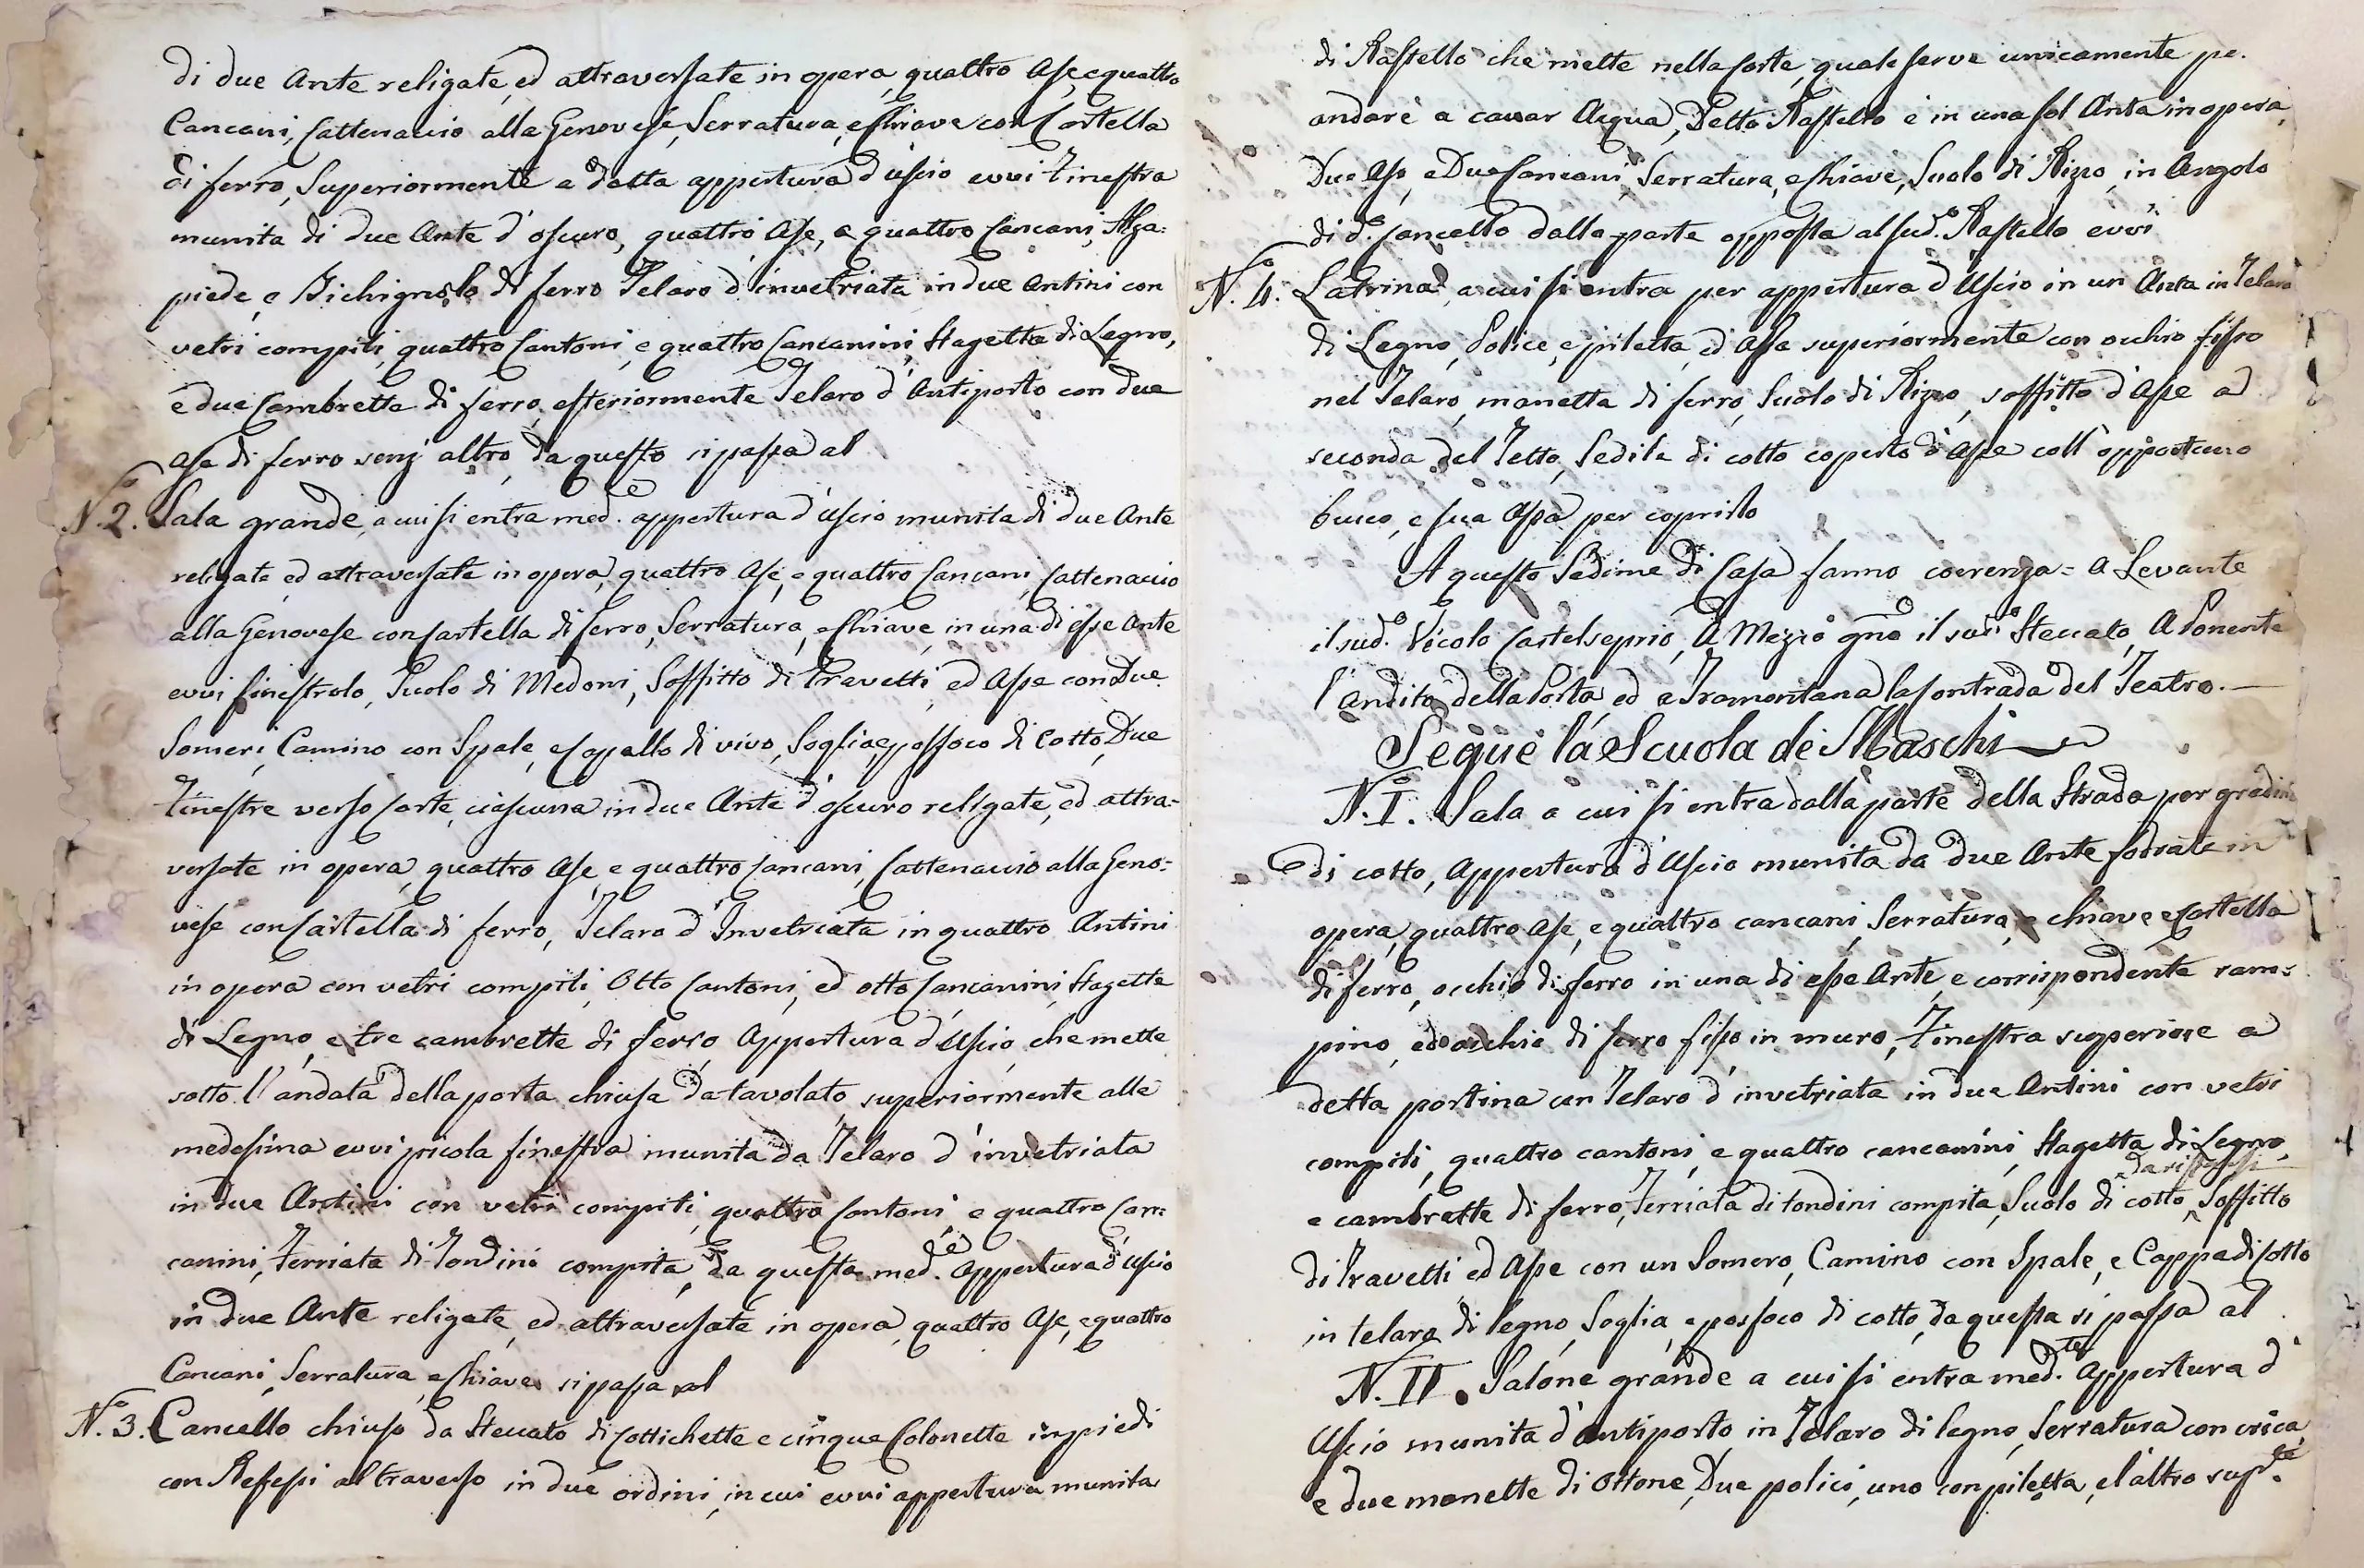 di due Ante religate, ed attraversate in opera, quattro Ase, e quattro
Cancani, Cattenaccio alla Genovese, Serratura, e Chiave con Cartella
di ferro, Superiormente a detta appertura d'uscio evvi Finestra
munita di due Ante d'oscuro, quattro Ase, e quattro Cancani, Alza=
piede, e Bichignolo di ferro Telaro d'invetriata in due Antini con
vetri compiti, quattro Cantoni, e quattro Cancanini, Stagetta di Legno,
e due Cambrette di ferro, esteriormente Telaro d'Antiporto con due
Ase di ferro senz'altro, da questo si passa al
N.º 2. Sala grande, a cui si entra med.e appertura d'uscio munita di due Ante
religate, ed attraversate in opera, quattro Ase, e quattro Cancani, Cattenaccio
alla Genovese con Cartella di ferro, Serratura, e Chiave, in una di esse Ante
evvi finestrolo, Suolo di Medoni, Soffitto di Travetti, ed Asse con due
Someri, Camino con Spale, e Copallo di vivo, Soglia, e posfoco di Cotto, Due
Finestre verso Corte, ciascuna in due Ante d'oscuro religate, ed attra=
versate in opera, quattro Ase, e quattro Cancani, Cattenaccio alla Geno=
vese con Cartella di ferro, Telaro d'Invetriata in quattro Antini
in opera con vetri compiti, Otto Cantoni, ed otto Cancanini, Stagette
di Legno, e tre cambrette di ferro, Appertura d'Uscio, che mette
sotto l'andata della porta chiusa da tavolato, superiormente alle
medesima evvi picola finestra munita da Telaro d'invetriata
in due Antini con vetri compiti, quattro Cantoni, e quattro Can=
canini, Ferriata di Tondini compita, da questa med.e Appertura d'Uscio
in due Ante religate, ed attraversate in opera, quattro Ase, e quattro
Cancani, Serratura, e Chiave si passa al
N.º 3. Cancello chiuso da Steccato di Cottichette e cinque Colonette in piedi
con Refessi al traverso in due ordini, in cui evvi appertura munita
di Rastello che mette nella Corte, quale serve unicamente pe.
andare a cavar Acqua, Detto Rastello è in una sol Anta in opera,
Due Ase, e Due Cancani, Serratura, e Chiave, Suolo di Rizzo, in Angolo
di d.º Cancello dalla parte opposta al sud.º Rastello evvi
N.º 4. Latrina, a cui si entra per appertura d'Uscio in un Anta in Telaro
di Legno, Police, e piletta, ed Asa superiormente con occhio fisso
nel Telaro, manetta di ferro, Suolo di Rizzo, soffitto d'Asse a
seconda del Tetto, Sedile di cotto coperto d'Asse coll'opportuno
buco, e sua Assa per coprirlo
A questo Sedime di Casa fanno coerenza = A Levante
il sud.º Vicolo Castelseprio, A Mezzo gno il sud.º Steccato, A Ponente
l'Andito della Porta ed a Tramontana la Contrada del Teatro. —
Segue la Scuola de Maschi
N.º I. Sala a cui si entra dalla parte della Strada per gradini
di cotto, Appertura d'Uscio munita da due Ante fodrate in
opera, quattro Ase, e quattro cancani, Serratura, e chiave e Cartella
di ferro, occhio di ferro in una di esse Ante, e corrispondente ram=
pino, ed occhio di ferro fisso in muro, Finestra superiore a
detta portina con Telaro d'invetriata in due Antini con vetri
compiti, quattro cantoni, e quattro cancanini, Stagetta di Legno,
e cambrette di ferro, Ferriata di tondini compita, Suolo di cotto, Soffitto
di Travetti, ed Asse con un Somero, Camino con Spale, e Cappa di Cotto
in telaro di legno, Soglia, e posfoco di cotto, da questa si passa al
N.º II. Salone grande a cui si entra med.te Appertura d'
Uscio munita d'antiporto in Telaro di legno, Serratura con cricca,
e due manette di Ottone, Due polici, uno con piletta, e l'altro sup.te